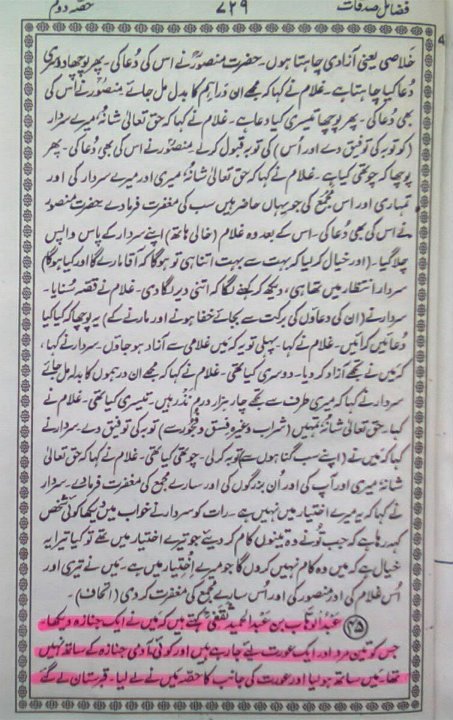 فضائل صدقات ۷۲۹ حصہ دوم
خلاصی یعنی آزادی چاہتا ہوں۔ حضرت منصورؒ نے اس کی دعا کی۔ پھر پوچھا دوسری
دعا کیا چاہتا ہے۔ غلام نے کہا کہ مجھے ان دراہم کا بدل مل جائے منصورؒ نے اس کی
بھی دعا کی۔ پھر پوچھا تیسری کیا دعا ہے۔ غلام نے کہا کہ حق تعالیٰ شانہٗ میرے سردار
(کو توبہ کی توفیق دے اور اُس) کی توبہ قبول کرے۔ منصورؒ نے اس کی بھی دعا کی۔ پھر
پوچھا کہ چوتھی کیا ہے۔ غلام نے کہا کہ حق تعالیٰ شانہٗ میری اور میرے سردار کی اور
تمہاری اور اس مجمع کی جو یہاں حاضر ہیں سب کی مغفرت فرما دے حضرت منصورؒ
نے اس کی بھی دعا کی۔ اس کے بعد وہ غلام (خالی ہاتھ) اپنے سردار کے پاس واپس
چلا گیا۔ (اور خیال کر لیا کہ بہت سے بہت اتنا ہی تو ہو گا کہ آقا مارے گا اور کیا ہو گا)
سردار انتظار میں تھا ہی، دیکھ کر کہنے لگا کہ اتنی دیر لگا دی۔ غلام نے قصہ سنایا۔
سردار نے (ان کی دعاؤں کی برکت سے بجائے خفا ہونے اور مارنے کے) یہ پوچھا کہ کیا کیا
دعائیں کرائیں۔ غلام نے کہا۔ پہلی تو یہ کہ میں غلامی سے آزاد ہو جاؤں۔ سردار نے کہا،
کہ میں نے تجھے آزاد کر دیا۔ دوسری کیا تھی۔ غلام نے کہا کہ مجھے ان درہموں کا بدلہ مل جائے
سردار نے کہا کہ میری طرف سے تجھے چار ہزار درم نذر ہیں۔ تیسری کیا تھی۔ غلام نے
کہا۔ حق تعالیٰ شانہٗ تمہیں (شراب وغیرہ فسق و فجور سے) توبہ کی توفیق دے۔ سردار نے
کہا کہ میں نے (اپنے سب گناہوں سے) توبہ کر لی۔ چوتھی کیا تھی۔ غلام نے کہا کہ حق تعالیٰ
شانہٗ میری اور آپ کی اور اُن بزرگوں کی اور سارے مجمع کی مغفرت فرما دے۔ سردار
نے کہا کہ یہ میرے اختیار میں نہیں ہے۔ رات کو سردار نے خواب میں دیکھا کوئی شخص
کہہ رہا ہے کہ جب تُو نے وہ تینوں کام کر دیئے جو تیرے اختیار میں تھے تو کیا تیرا یہ
خیال ہے کہ میں وہ کام نہیں کروں گا جو میرے اختیار میں ہے۔ میں نے تیری اور
اُس غلام کی اور منصورؒ کی اور اُس سارے مجمع کی مغفرت کر دی (اتحاف)۔
(۴۵) عبدالوہاب بن عبدالحمید ثقفیؒ کہتے ہیں کہ میں نے ایک جنازہ دیکھا،
جس کو تین مرد اور ایک عورت لئے جا رہے ہیں اور کوئی آدمی جنازہ کے ساتھ نہیں
تھا، میں ساتھ ہو لیا اور عورت کی جانب کا حصہ میں نے لے لیا۔ قبرستان لے گئے